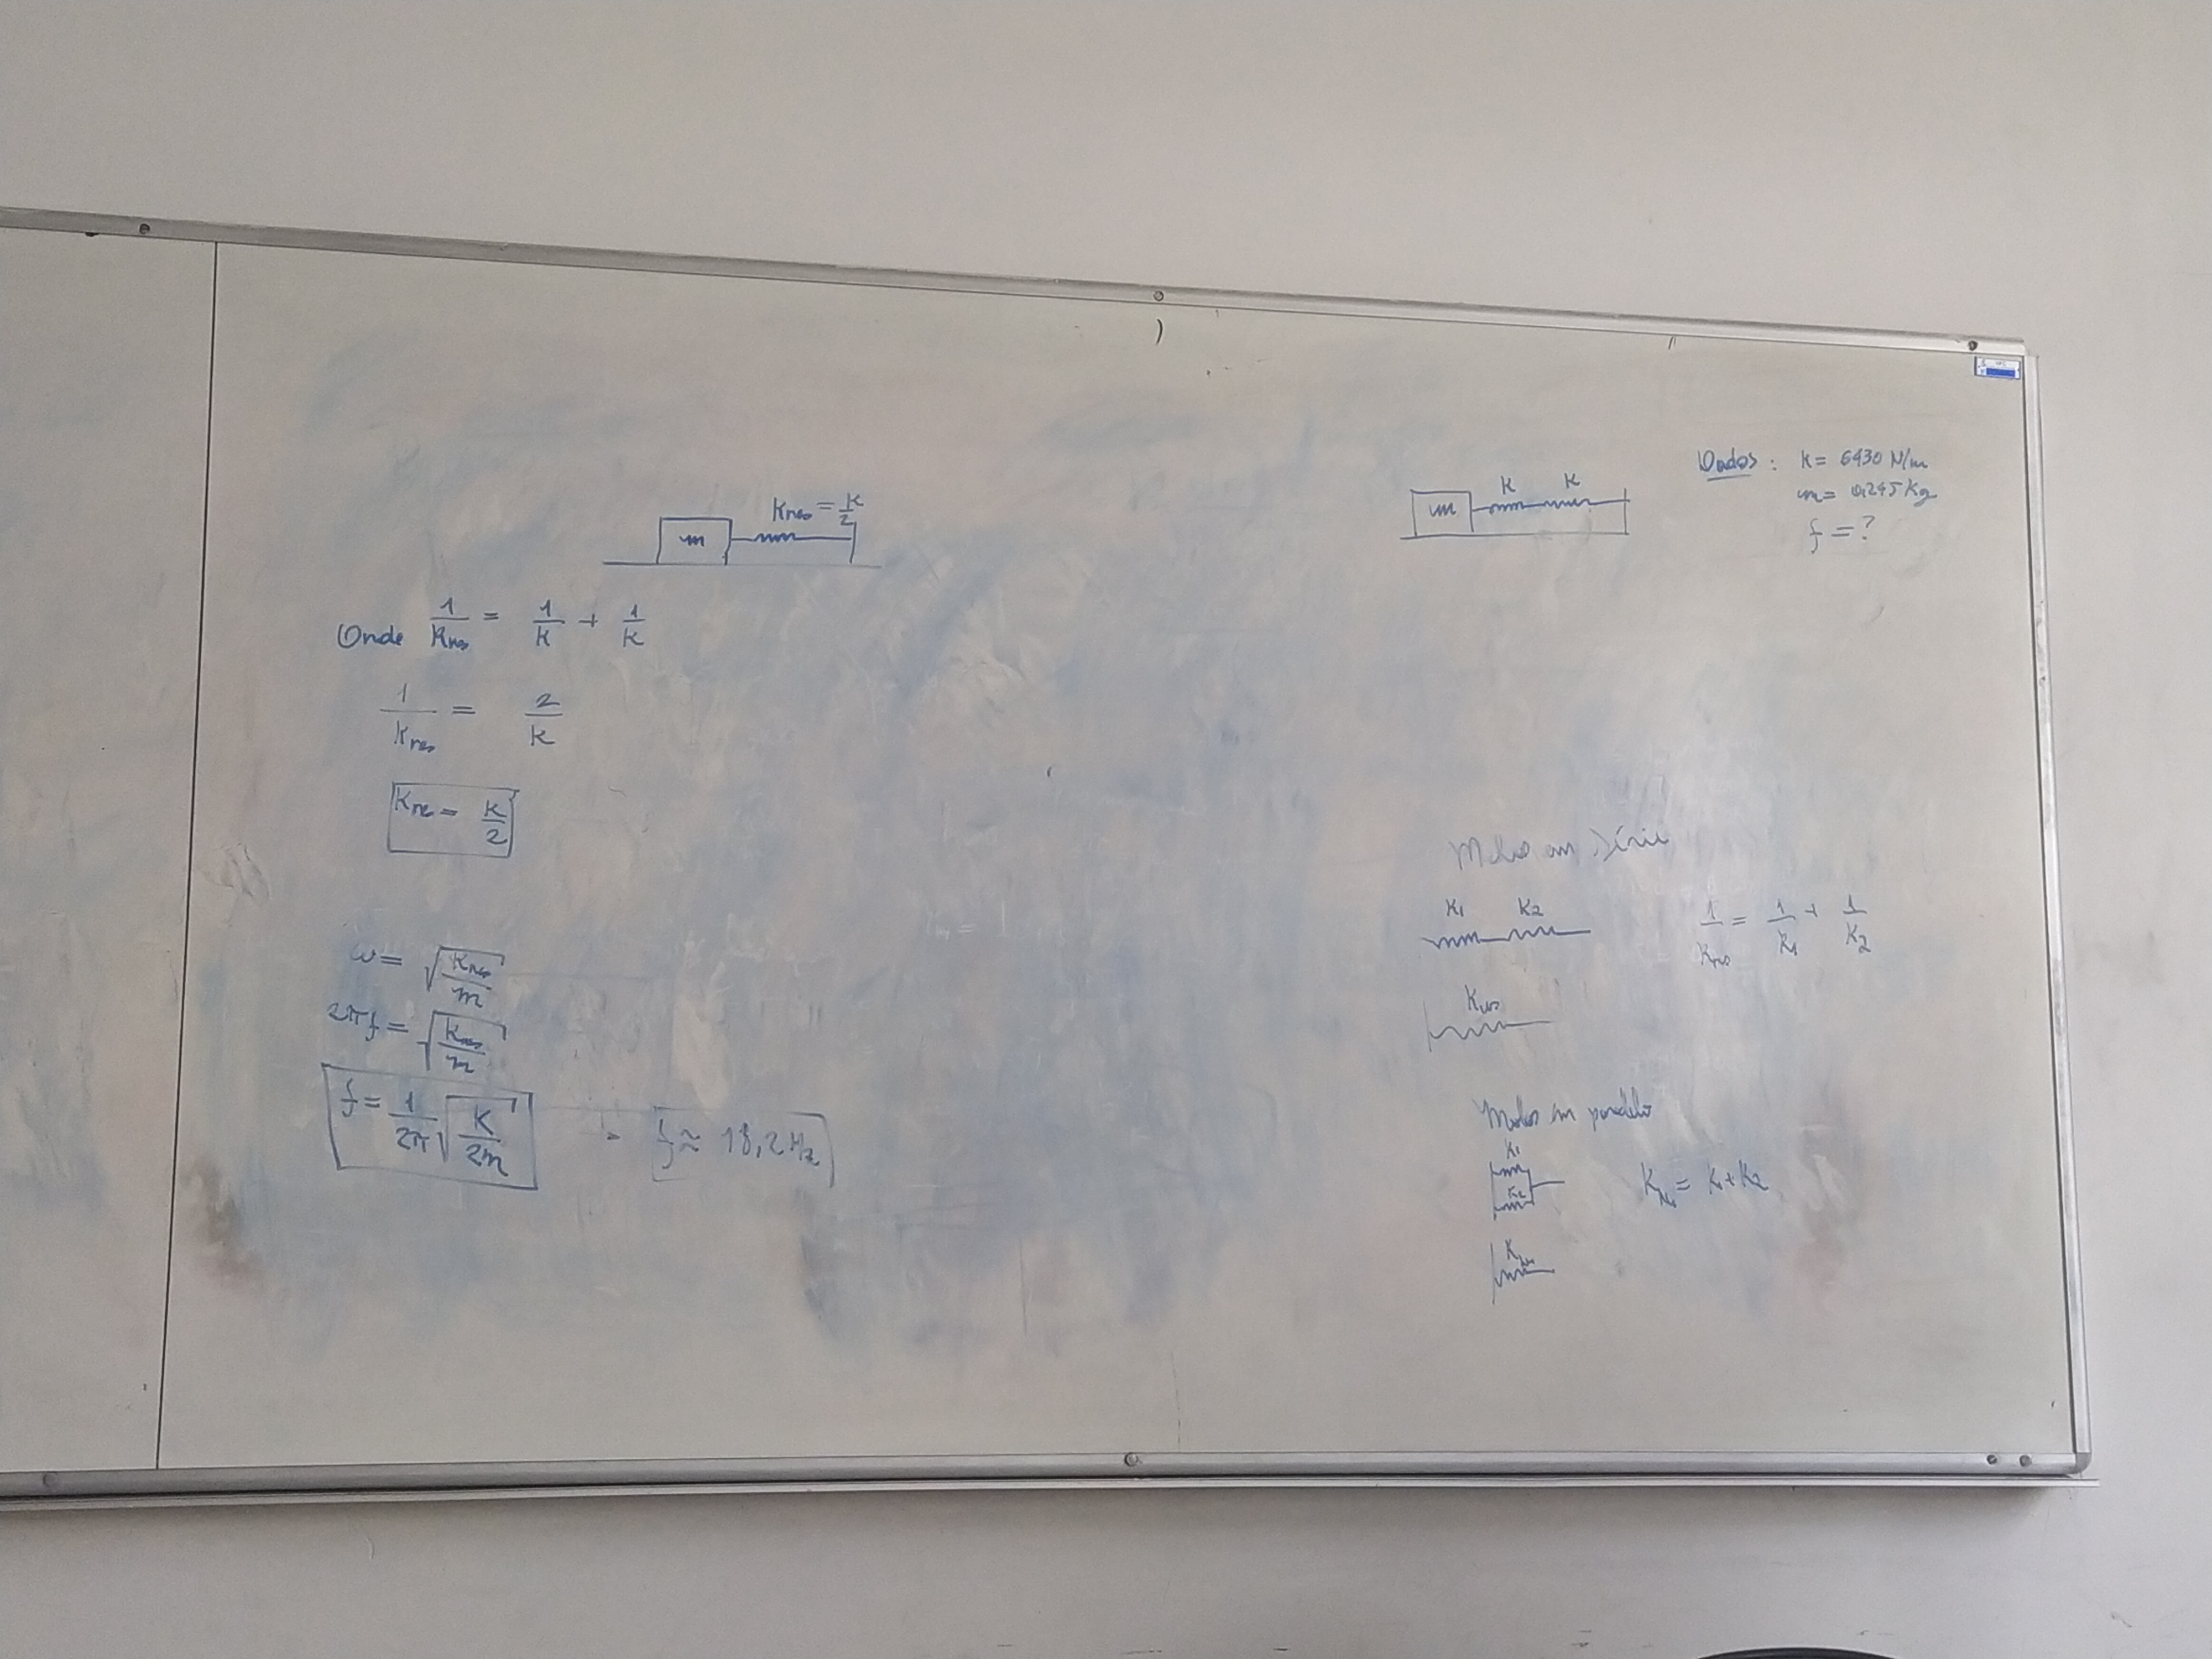 Kres = K/2
m
Onde 1/Kres = 1/K + 1/K
1/Kres = 2/K
Kres = K/2
ω = √(Kres/m)
2πf = √(Kres/m)
f = 1/2π √(K/2m)
f ≈ 18,2 Hz
K K
m
Dados: K = 6430 N/m
m = 0,245 Kg
f = ?
Molas em Série
K1 K2
1/Kres = 1/K1 + 1/K2
Kres
Molas em paralelo
K1
K2
Kres = K1 + K2
Kres